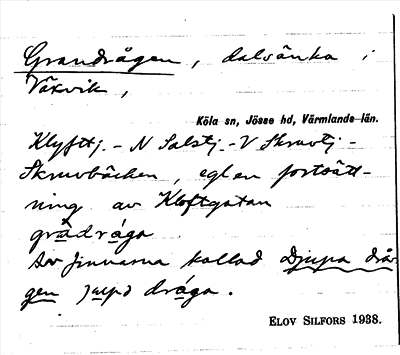 Grandrågen, dalsänka i
Växvik,
Köla sn, Jösse hd, Värmlands län.
Klyfttj. - N Salstj. - V Skruvtj -
Skruvbäcken, egl en fortsätt-
ning av Kloftgatan
grådråga
Av finnarna kallad Djupa drå-
gen jupå dråga.
ELOV SILFORS 1938.